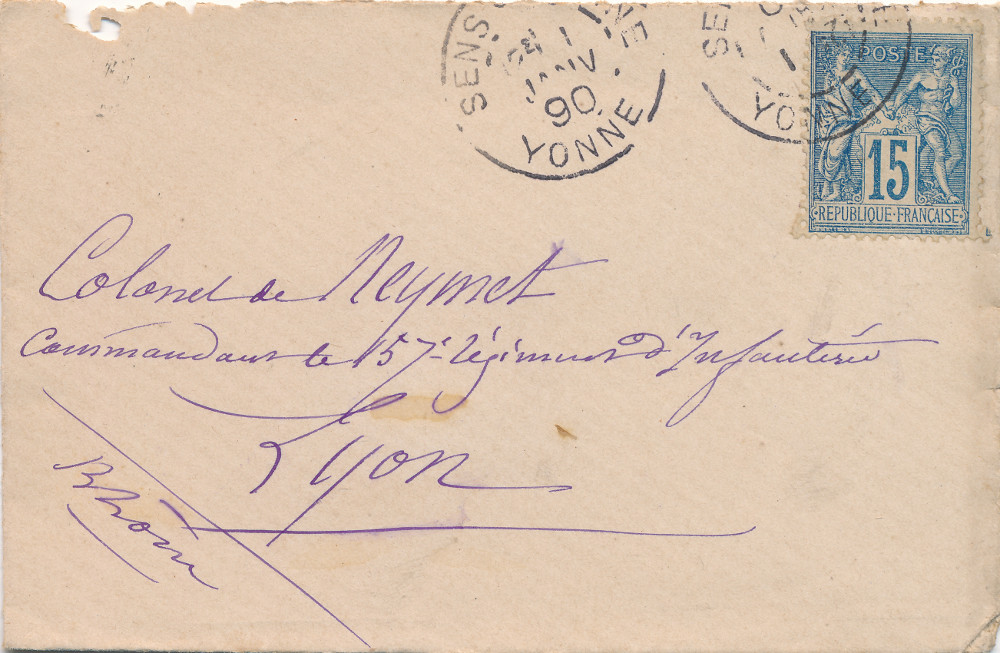 SENS
1
JANV
90
YONNE
SE
1
YONNE
POSTE
15
REPUBLIQUE FRANÇAISE
Colonel de Neymet
Commandant le 157e régiment d'Infanterie
Lyon
Rhône